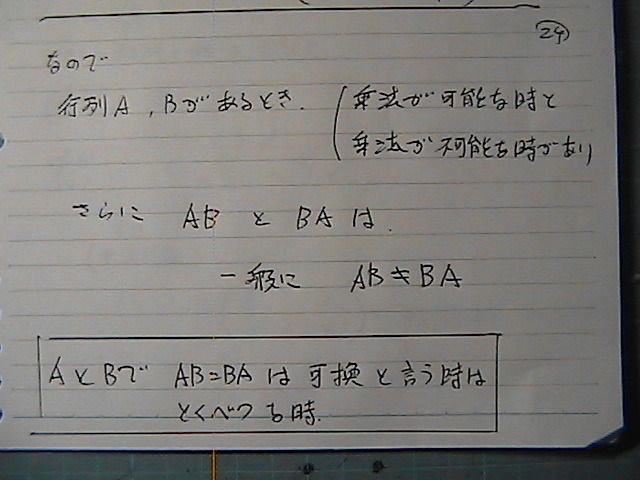 24
なので
行列A , Bがあるとき. 乗法が可能な時と
乗法が不可能な時があり
さらに AB と BA は.
一般に AB≠BA
AとBで AB=BA は 可換 と言う時は
とくべつな時.